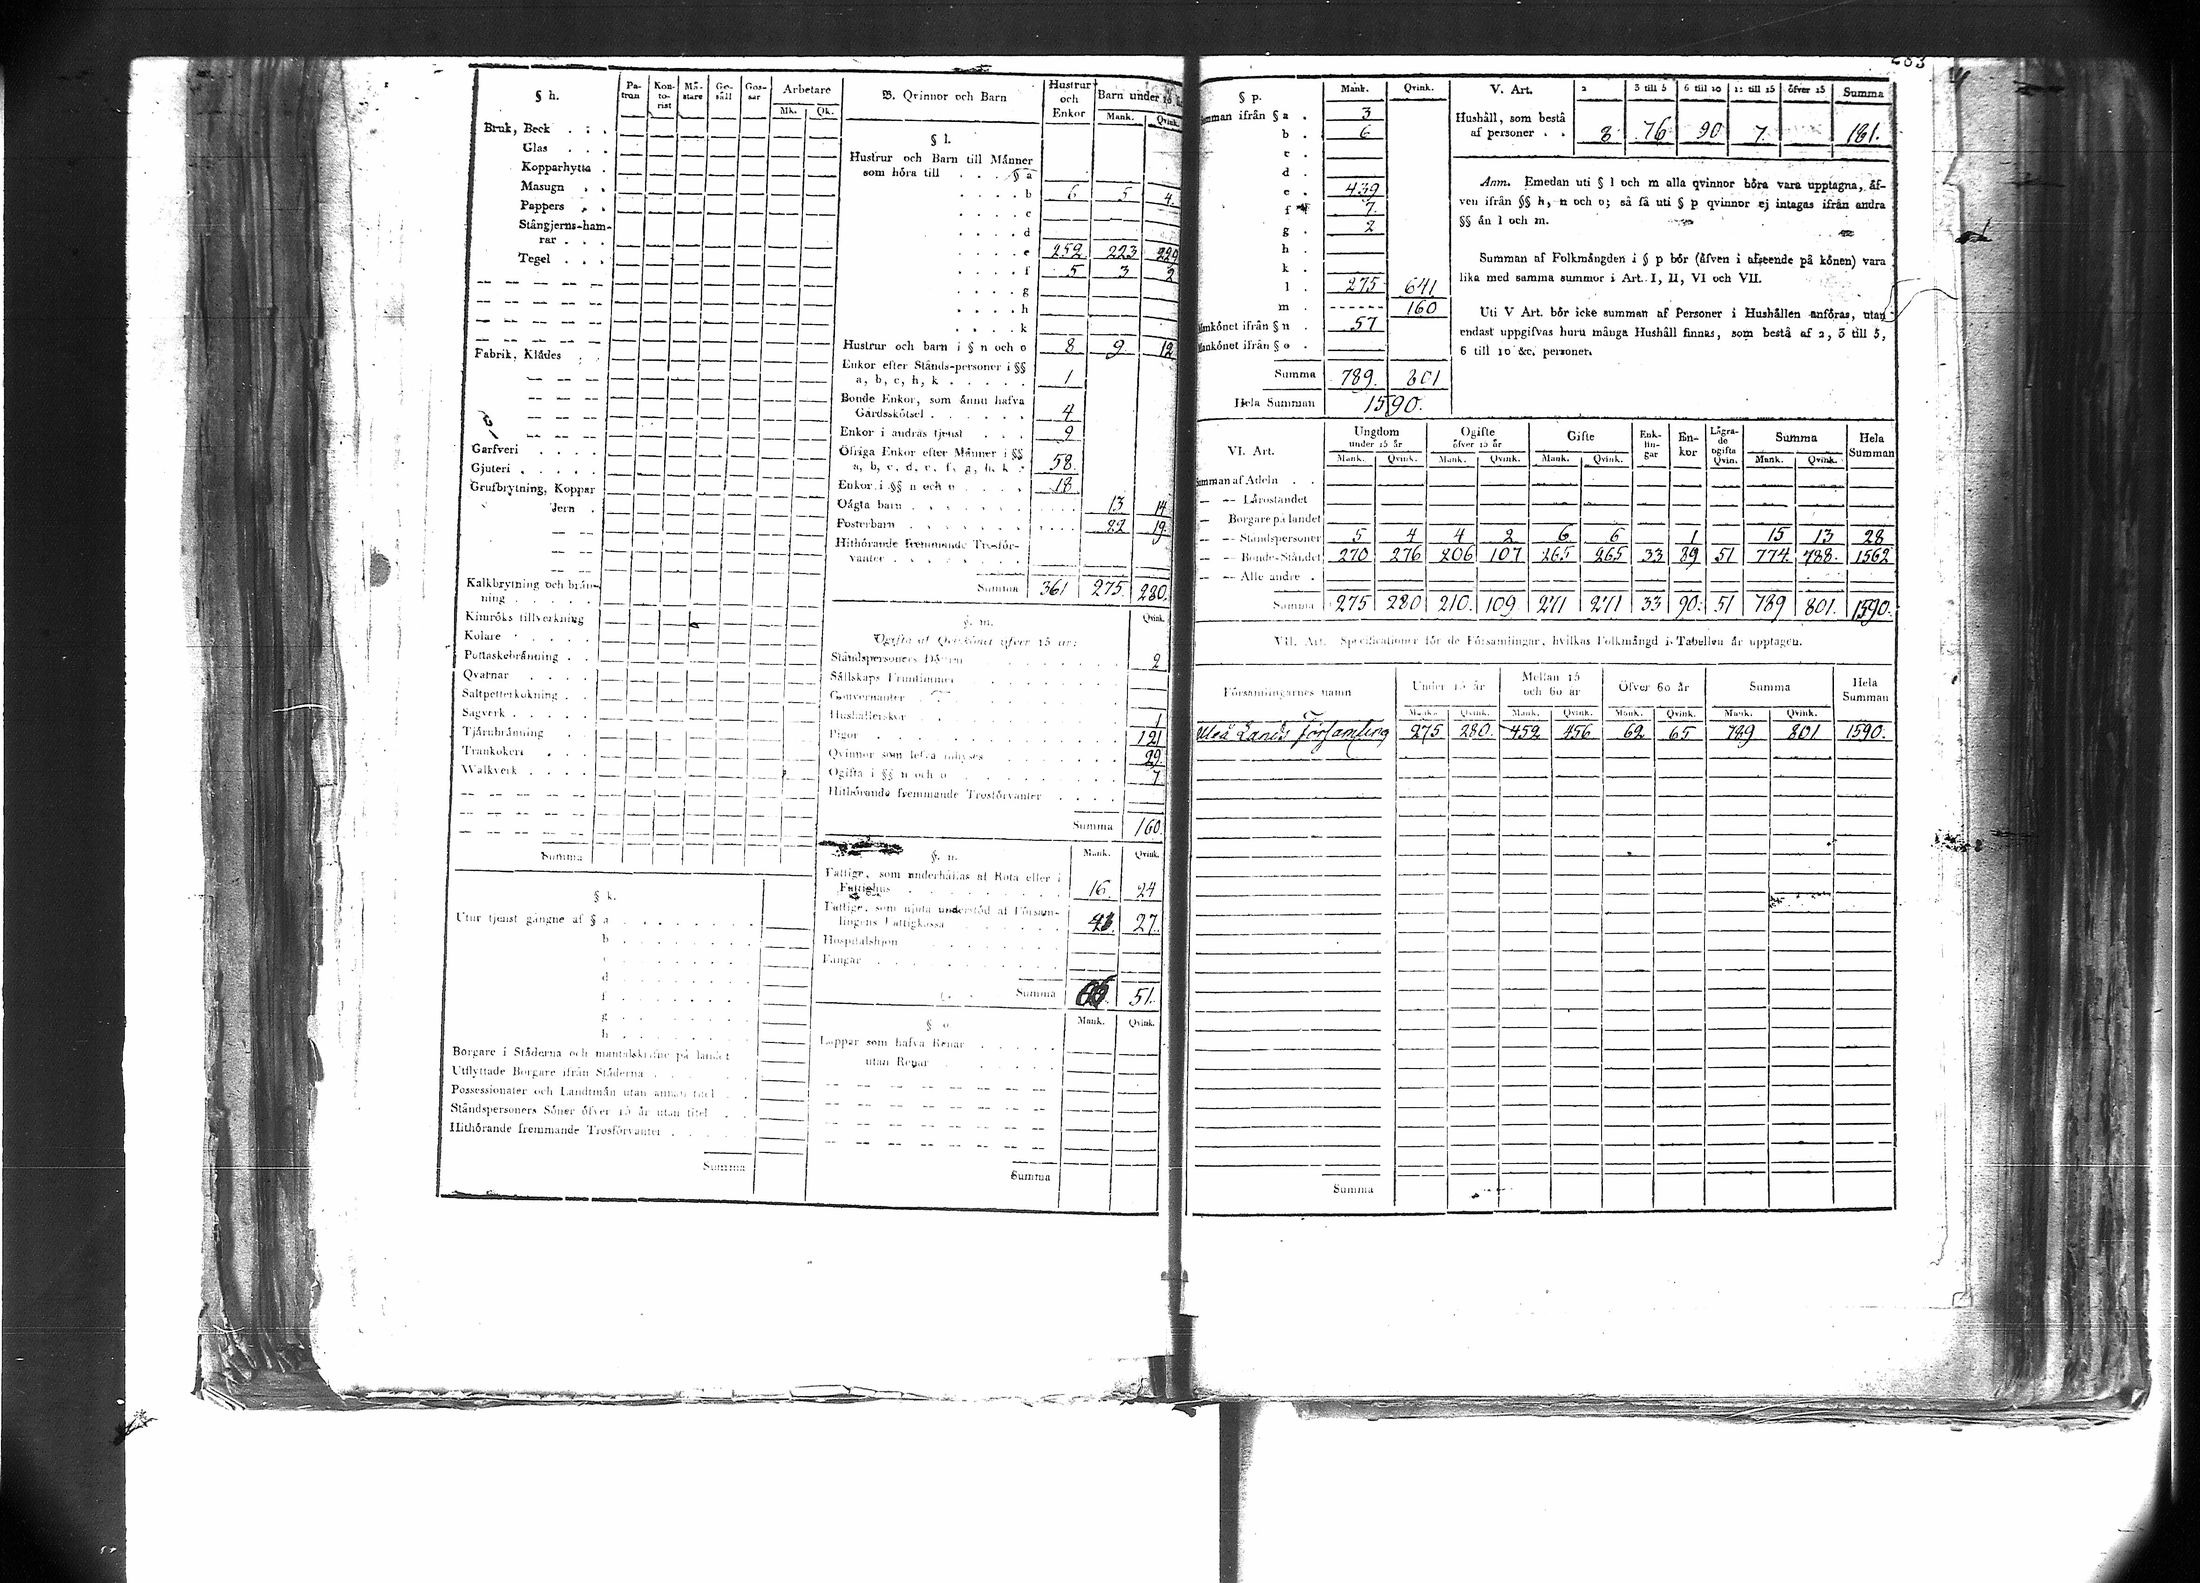 § h.
Pa-tron Kon-to-rist Mä-stare Ge-säll Gos-sar Arbetare
Mk. Qk.
Bruk, Beck . . .
Glas . . .
Kopparhytta .
Masugn . .
Pappers . .
Stångjerns-ham-
rar . . .
Tegel . . .
Fabrik, Klädes . .
Garfveri . . . .
Gjuteri . . . . .
Grufbrytning, Koppar
Jern .
Kalkbrytning och brän-
ning . . . . .
Kimröks tillverkning
Kolare . . . . .
Pottaskebränning . .
Qvarnar . . . .
Saltpetterkokning . .
Sagverk . . . . .
Tjärubränning . .
Trankokeri . . .
Walkverk . . . .
Summa
§ k.
Utur tjenst gångne af § a . . . . . . .
b . . . . . . .
d . . . . . . .
f . . . . . . .
g . . . . . . .
h . . . . . . .
Borgare i Städerna och mantalskrifne på landet
Utflyttade Borgare ifrån Städerna . . . . .
Possessionater och Landtmän utan annan titel . .
Ståndspersoners Söner öfver 15 år utan titel . .
Hithörande fremmande Trosförvanter . . . . .
Summa
B. Qvinnor och Barn Hustrur och Enkor Barn under 15 år
Mank. Qvink.
§ l.
Hustrur och Barn till Männer
som höra till . . . § a
. . . . b 6 5 4.
. . . . c
. . . . d
. . . . e 252 223 229
. . . . f 5 3 2
. . . . g
. . . . h
. . . . k
Hustrur och barn i § n och o 8 9 12
Enkor efter Stånds-personer i §§
a, b, c, h, k . . . . . 1
Bonde Enkor, som ännu hafva
Gårdsskötsel . . . . . . 4
Enkor i andras tjenst . . . 9
Öfriga Enkor efter Männer i §§
a, b, c, d, e, f, g, h, k . 58.
Enkor i §§ n och o . . . . 18
Oägta barn . . . . . . . . . . . 13 14
Fosterbarn . . . . . . . . . . . 22 19.
Hithörande fremmande Trosför-
vanter . . . . . . .
Summa 361 275. 280.
§. m. Qvink.
Ogifta af Qvinkönet öfver 15 år:
Ståndspersoners Döttrar . . . . . . . 2
Sällskaps Fruntimmer . . . . . . .
Gouvernanter . . . . . . .
Hushållerskor . . . . . . . 1
Pigor . . . . . . . . . 121
Qvinnor som lefva inhyses . . . . . . 29.
Ogifta i §§ n och o . . . . . . . 7
Hithörande fremmande Trosförvanter . . . .
Summa 160.
§. n. Mank. Qvink.
Fattige, som underhållas af Rota eller i
Fattighus . . . . . . . . . 16. 24
Fattige, som njuta understöd af Försam-
lingens Fattigkassa . . . . . . 27.
Hospitalshjon . . . . . . . .
Fångar . . . . . . . . . .
Summa 51.
§ o Mank. Qvink.
Lappar som hafva Renar . . . . .
utan Renar . . . . . .
Summa
§ p. Mank. Qvink.
Summan ifrån § a . 3
b . 6
c .
d .
e . 439
f . 7.
g . 2
h .
k .
l . 275 641
m . - - - - - 160
Mankönet ifrån § n . 57
Mankönet ifrån § o .
Summa 789. 801
Hela Summan 1590.
V. Art. 2 3 till 5 6 till 10 11 till 15 öfver 15 Summa
Hushåll, som bestå
af personer . . 8 76 90 7. 181.
Anm. Emedan uti § l och m alla qvinnor böra vara upptagna, äf-
ven ifrån §§ h, n och o; så få uti § p qvinnor ej intagas ifrån andra
§§ än l och m.
Summan af Folkmängden i § p bör (äfven i afseende på könen) vara
lika med samma summor i Art. I, II, VI och VII.
Uti V Art. bör icke summan af Personer i Hushållen anföras, utan
endast uppgifvas huru många Hushåll finnas, som bestå af 2, 3 till 5,
6 till 10 &c. personer.
VI. Art. Ungdom under 15 år Ogifte öfver 15 år Gifte Enk-lin-gar En-kor Lägra-de ogifta Qvin. Summa Hela Summan
Mank. Qvink. Mank. Qvink. Mank. Qvink. Mank. Qvink.
Summan af Adeln . .
— — Läroståndet
— Borgare på landet
— — Ståndspersoner 5 4 4 2 6 6 1 15 13 28
— — Bonde-Ståndet 270 276 206 107 265 265 33 89 51 774. 788. 1562
— — Alle andre .
Summa 275 280 210. 109 271 271 33 90. 51 789 801. 1590.
VII. Art. Specificationer för de Församlingar, hvilkas Folkmängd i Tabellen är upptagen.
Församlingarnes namn Under 15 år Mellan 15 och 60 år Öfver 60 år Summa Hela Summan
Mank. Qvink. Mank. Qvink. Mank. Qvink. Mank. Qvink.
Uleå Lands församling 275 280. 452 456 62 65 789 801 1590.
Summa